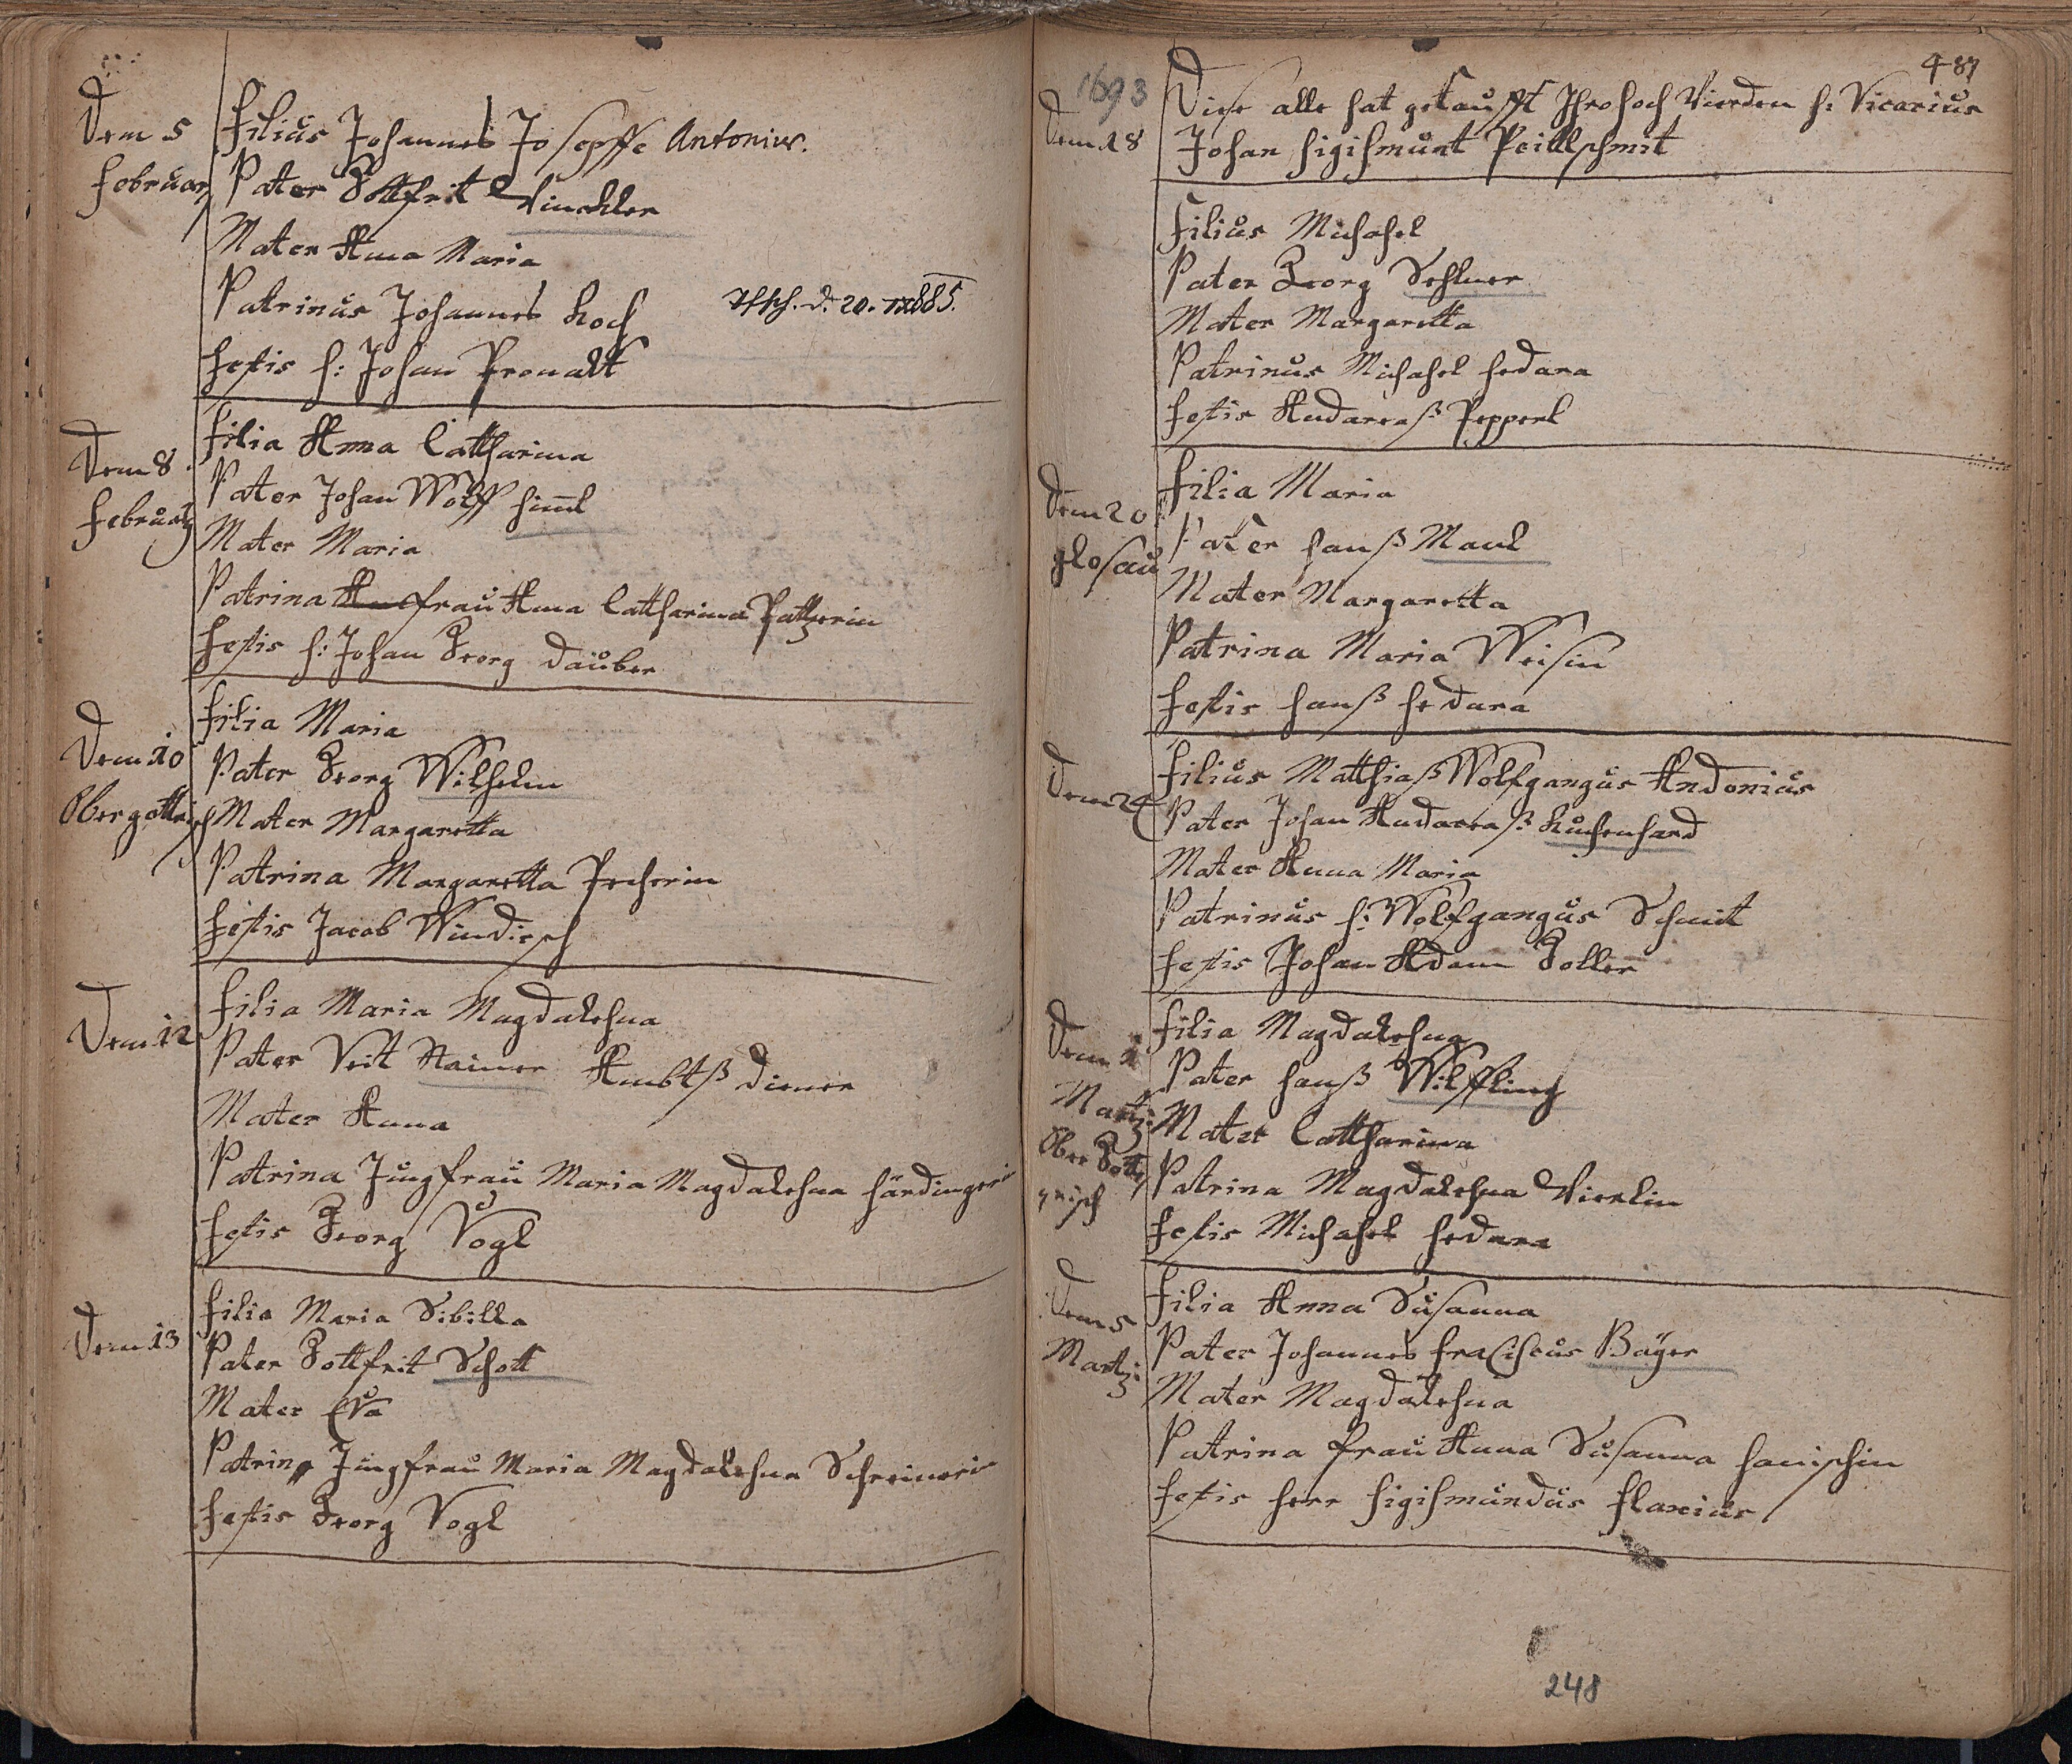 Dem 5
Februarÿ
Filius Johannes Josepffe Antonius.
Pater Gottfrit Winckler
Mater Anna Maria
Patrinus Johannes Koch
d. 20. 1885.
Testis H: Johan
Dem 8
Februarÿ
Filia Anna Cattharina
Pater Johan Wolff Himl
Mater Maria
Patrina Frau Anna Cattharina
Testis H: Johan Georg Dauber
Dem 10
Obergottnisch
Filia Maria
Pater Georg Wilhelm
Mater Margaretta
Patrina Margaretta Pecherin
Testis Jacob Windisch
Dem 12
Filia Maria Magdalehna
Pater Veit Stainer Ambtß diener
Mater Anna
Patrina Jungfrau Maria Magdalehna Härdingerin
Testis Georg Vogl
Dem 13
Filia Maria Sibilla
Pater Gottfrit Schott
Mater Eva
Patrina Jungfrau Maria Magdalehna Schreinerin
Testis Georg Vogl
487
1693
Dem 18
Diese alle hat getaufft Ihro hoch Wierden H: Vicarius
Johan Sigismunt Peillschmit
Filius Michahel
Pater Georg
Mater Margaretta
Patrinus Michahel Hedara
Testis Andareaß Pepperl
Dem 20
glosau
Filia Maria
Pater Hanß Maul
Mater Margaretta
Patrina Maria Weisin
Testis Hanß Hedara
Dem 24
Filius Matthiaß Wolfgangus Andonius
Pater Johan Andareaß Kuchenhard
Mater Anna Maria
Patrinus H: Wolfgangus Schmit
Testis Johan Adam Goller
Dem
Martzi
Ober Gott
gnisch
Filia Magdalehna
Pater Hanß Wilffling
Mater Cattharina
Patrina Magdalehna Vierlin
Testis Michahel Hedara
Dem 5
Martzi
Filia Anna Susanna
Pater Johannes Fraciscus Bäÿer
Mater Magdalehna
Patrina Frau Anna Susanna Hanischin
Testis Herr Sigismundus Flaxius
248